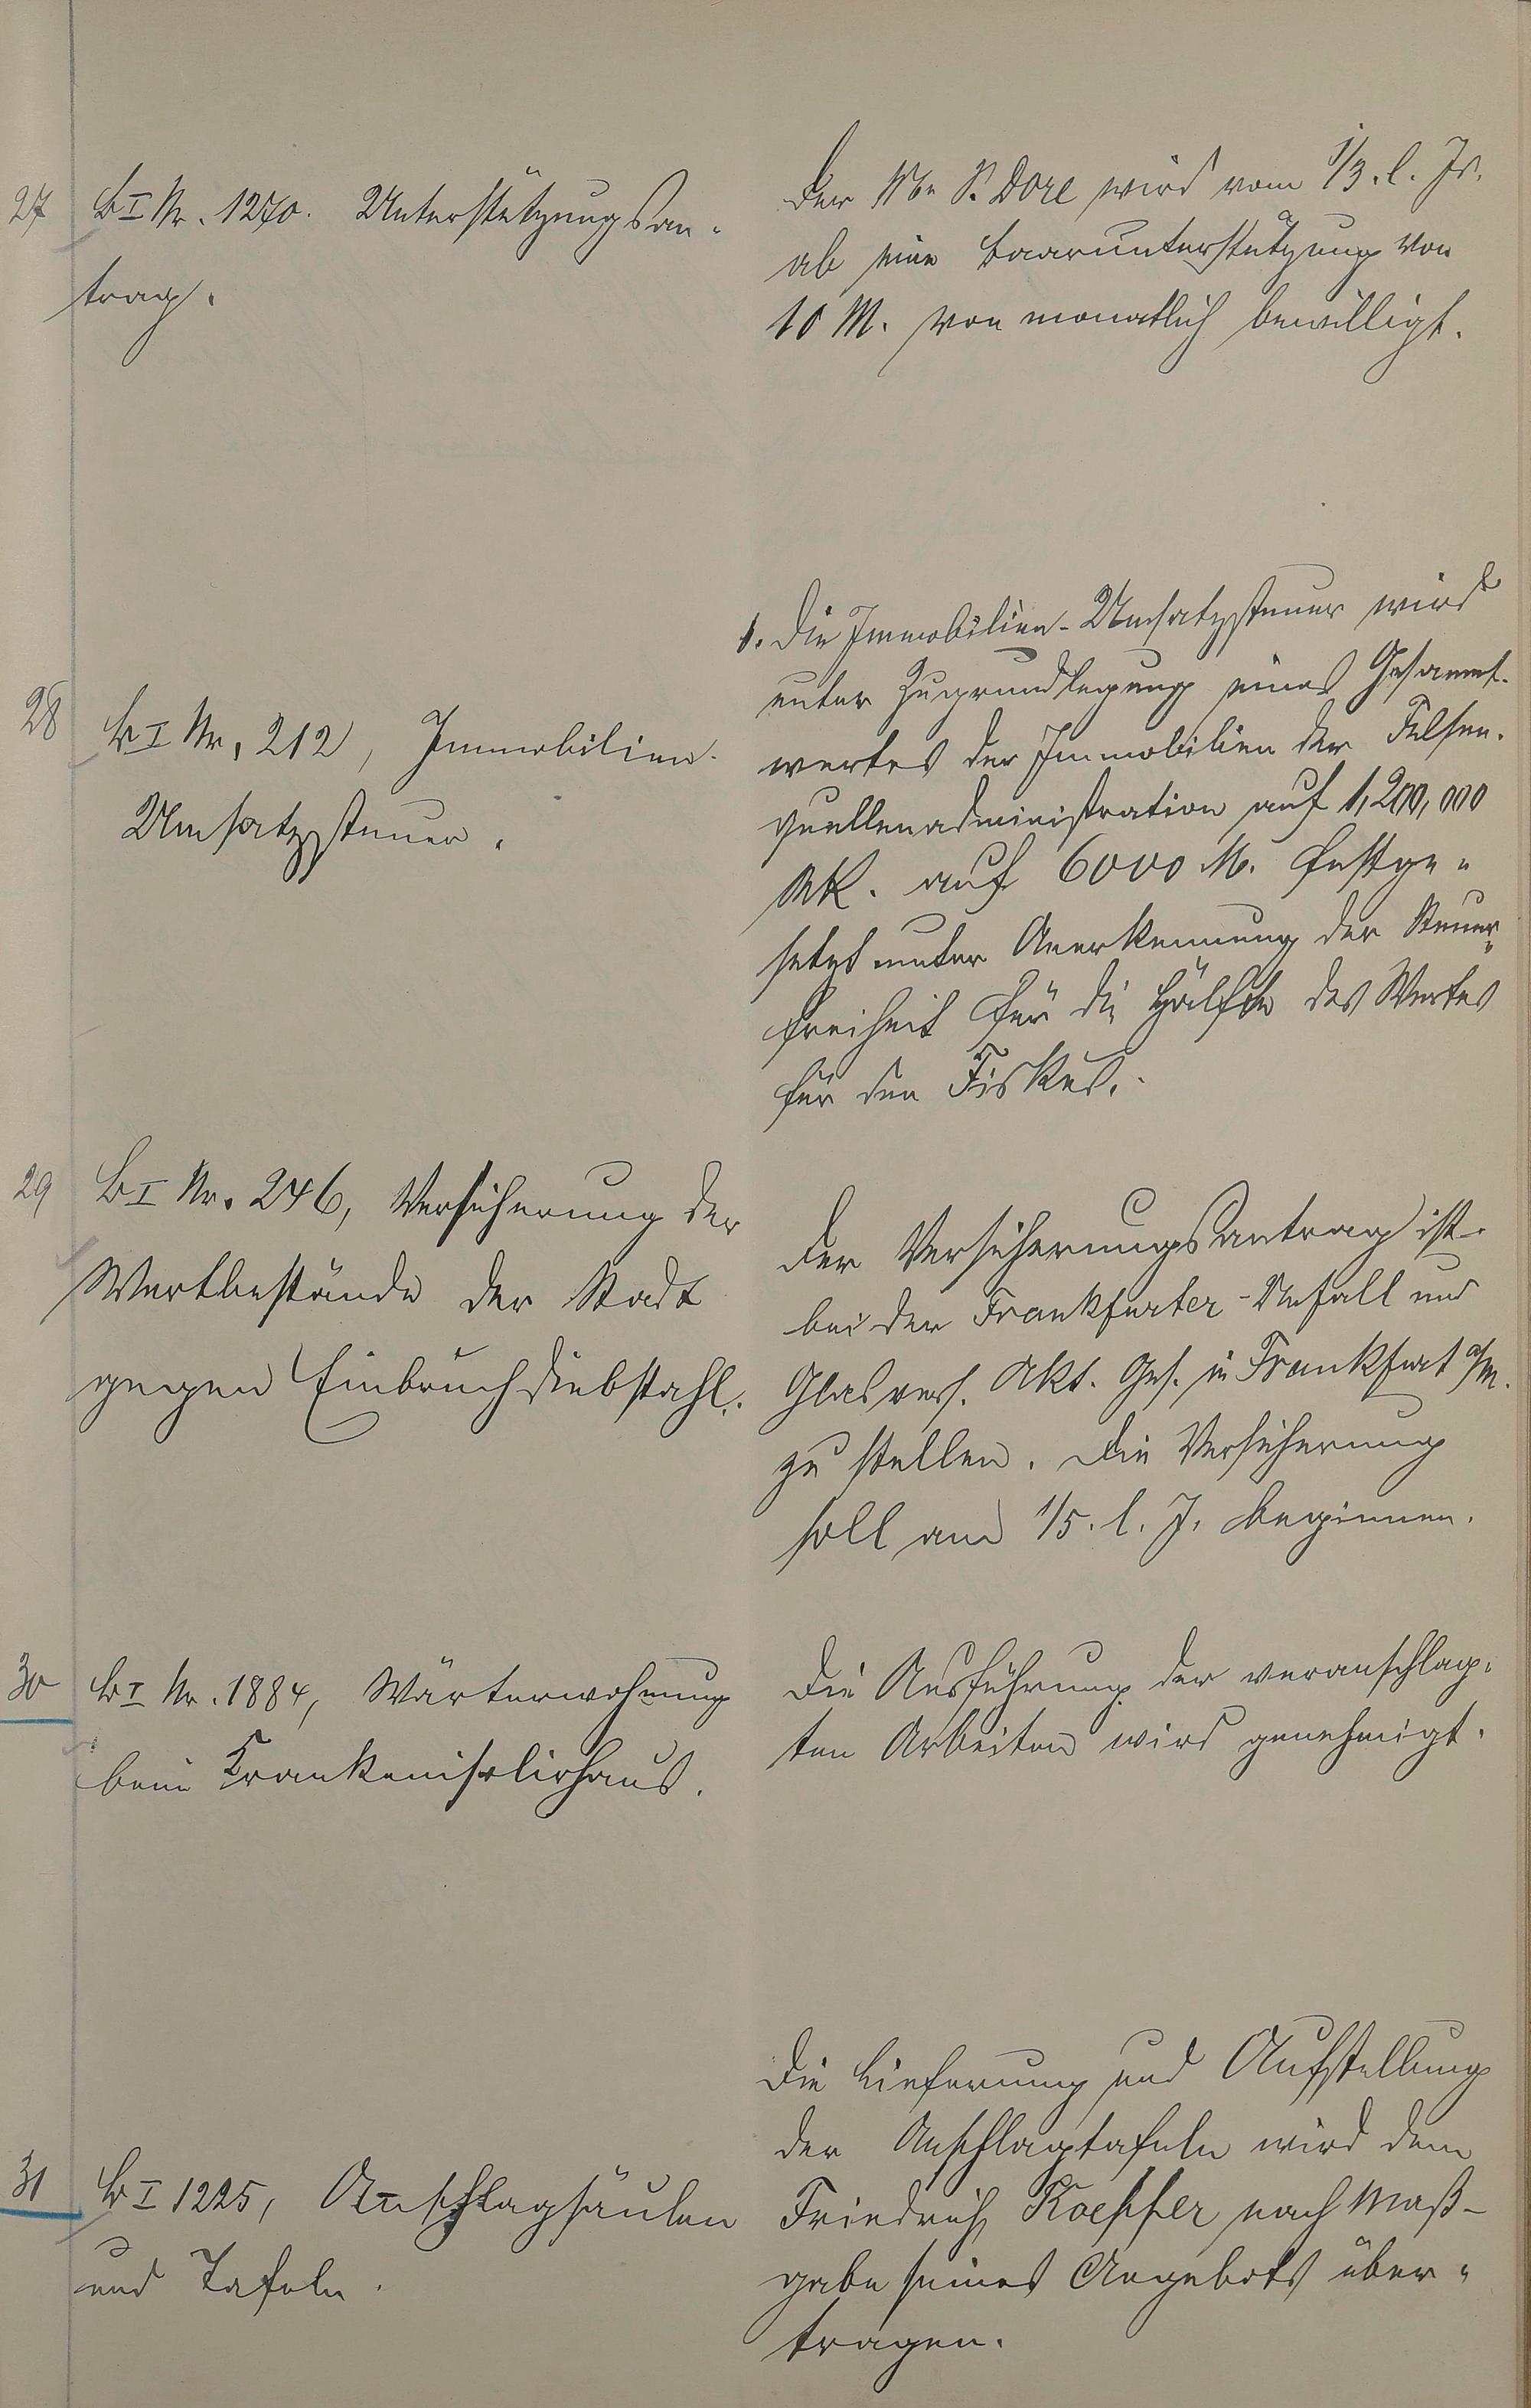 27
B I Nr. 1270. Unterstützungsan-
trag.
Der Ww. P. Dorl wird vom 1/3. l. Js.
ab eine Baarunterstützung von
10 M. von monatlich bewilligt.
28
B I Nr. 212, Immobilien-
Umsatzsteuer.
1. Die Immobilien-Umsatzsteuer wird
unter Zugrundlegung eines Gesammt-
wertes der Immobilien der Felsen-
quellenadministration auf 1,200,000
Mk. auf 6000 M. festge-
setzt unter Anerkennung der Steuer-
freiheit für die Hälfte des Wertes
für den Fiskus.
29
B I Nr. 246, Versicherung der
Wertbestände der Stadt
gegen Einbruchdiebstahl.
Der Versicherungsantrag ist
bei der Frankfurter-Unfall und
Glasvers. Akt. Ges. in Frankfurt a/M.
zu stellen. Die Versicherung
soll am 1/5. l. J. beginnen.
30
B I Nr. 1884, Wärterwohnung
beim Krankenisolirhaus.
Die Ausführung der veranschlag-
ten Arbeiten wird genehmigt.
31
B I 1225, Anschlagsäulen
und Tafeln.
Die Lieferung und Aufstellung
der Anschlagtafeln wird dem
Friedrich nach Maß-
gabe seines Angebots über-
tragen.